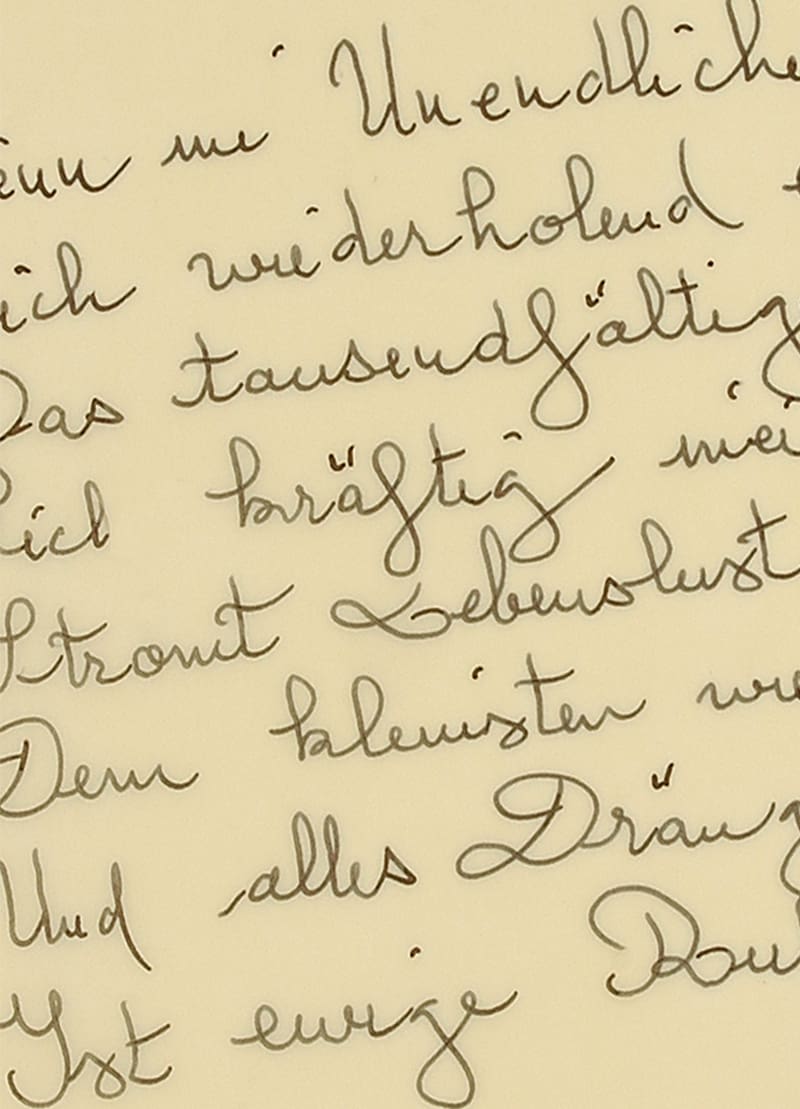 enn im Unendliche
ich wiederholend
Das tausendfältig
Sich kräftig inei
Strömt Lebenslust
Dem kleinsten wie
Und alles Dräng
Ist ewige Ruh